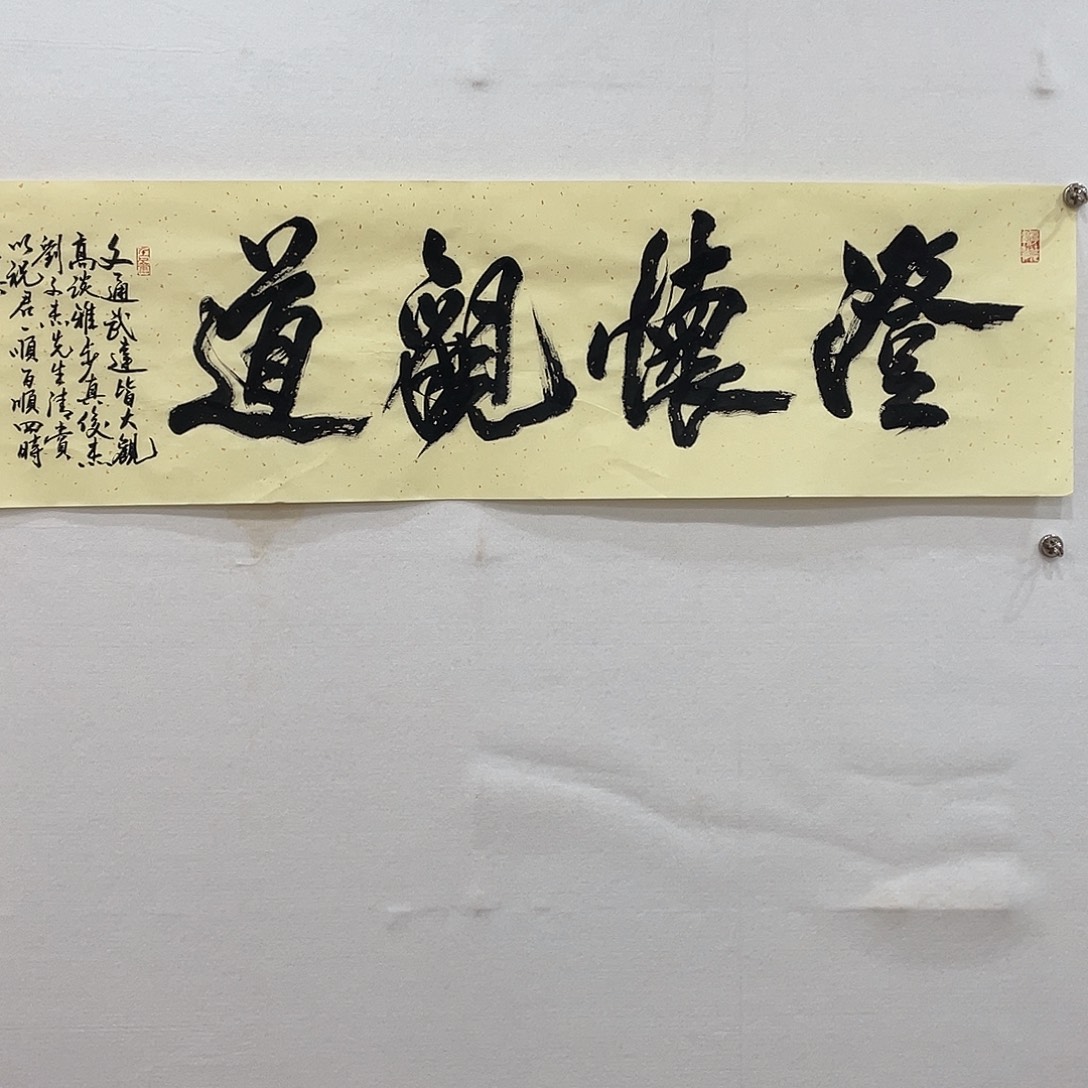 澄懷觀道
文通武達皆大觀
高談雅步真俊杰
劉子杰先生清賞
以祝君一順百順四時